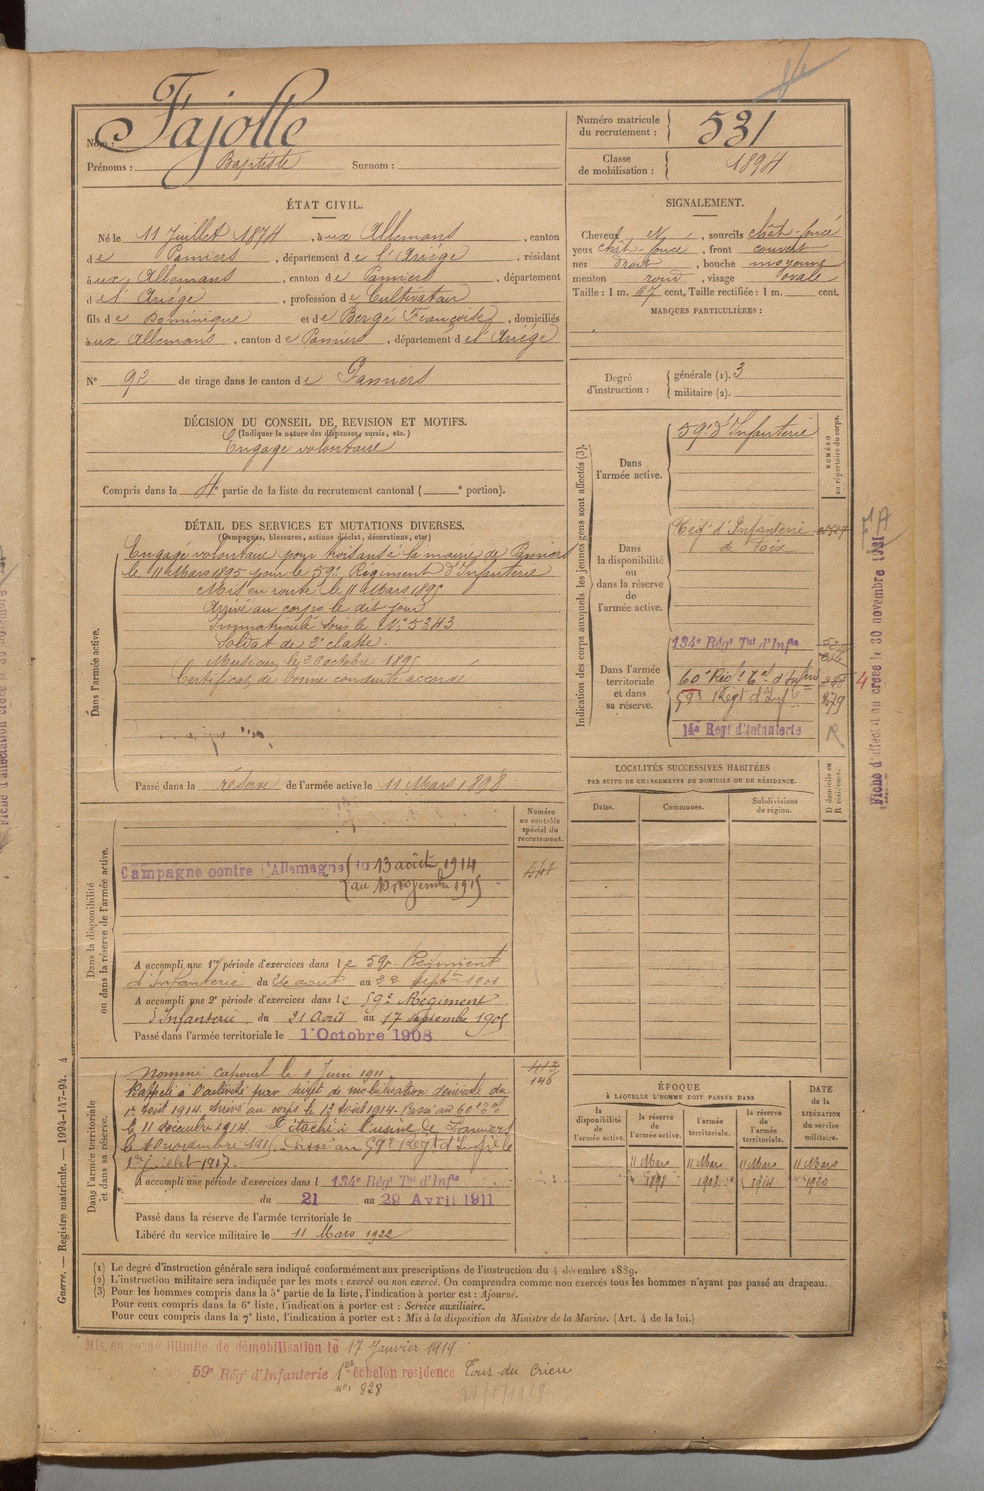 Nom : Fajolle
Prénoms : Baptiste Surnom :
Numéro matricule
du recrutement : 531
Classe
de mobilisation : 1894
ÉTAT CIVIL.
Né le 11 Juillet 1874, à ux Allemans, canton
de Pamiers, département de l'Ariège, résidant
à ux Allemans, canton de Pamiers, département
de l'Ariège, profession de Cultivateur
fils de Dominique et de Bergé Françoise, domiciliés
à ux Allemans, canton de Pamiers, département de l'Ariège
N° 92 de tirage dans le canton de Pamiers
SIGNALEMENT.
Cheveux N, sourcils chât-foncé
yeux chât-foncé, front couvert
nez droit, bouche moyenne
menton rond, visage ovale
Taille : 1 m. 67 cent. Taille rectifiée : 1 m. cent.
MARQUES PARTICULIÈRES :
Degré
d'instruction :
générale (1). 3
militaire (2).
DÉCISION DU CONSEIL DE REVISION ET MOTIFS.
(Indiquer la nature des dispenses, sursis, etc.)
Engagé volontaire
Compris dans la 4e partie de la liste du recrutement cantonal ( e portion).
DÉTAIL DES SERVICES ET MUTATIONS DIVERSES.
(Campagnes, blessures, actions d'éclat, décorations, etc.)
Dans l'armée active.
Engagé volontaire pour trois ans à la mairie de Pamiers
le 11 Mars 1895 pour le 59e Régiment d'Infanterie
Mis en route le 11 Mars 1895
Arrivé au corps le dit jour
Immatriculé sous le N° 5343
Soldat de 2e classe.
Musicien le 26 octobre 1895
Certificat de bonne conduite accordé
Passé dans la réserve de l'armée active le 11 Mars 1898
Indication des corps auxquels les jeunes gens sont affectés (3).
NUMÉRO
au répertoire du corps.
Dans
l'armée active.
59e d'Infanterie
Dans
la disponibilité
ou
dans la réserve
de
l'armée active.
Régt d'Infanterie
de Foix
Dans l'armée
territoriale
et dans
sa réserve.
134e Rég Tal d'Infie
60e Régt Tal d'Infie
59e Régt d'Infie 279
14e Regt d'Infanterie R
4
Fiche d'affectation créée le 30 novembre 1931
LOCALITÉS SUCCESSIVES HABITÉES
PAR SUITE DE CHANGEMENTS DE DOMICILE OU DE RÉSIDENCE.
D domicile ou
R résidence.
Dates. Communes. Subdivisions
de région.
Dans la disponibilité
ou dans la réserve de l'armée active.
Numéro
au contrôle
spécial du
recrutement.
Campagne contre l'Allemagne du 13 août 1914
au 10 novembre 1915
A accompli une 1re période d'exercices dans le 59e Régiment
d'Infanterie du 26 août au 22 Septbre 1901
A accompli une 2e période d'exercices dans le 59e Régiment
d'Infanterie du 21 Août au 17 Septembre 1905
Passé dans l'armée territoriale le 1er Octobre 1908
Dans l'armée territoriale
et dans sa réserve.
146
Nommé caporal le 1 Juin 1911.
Rappelé à l'activité par décret de mobilisation générale du
1er Août 1914. Arrivé au corps le 13 Août 1914. Passé au 60e
le 11 décembre 1914. Détaché à l'usine de Pamiers
le 10 novembre 1915. Passé au 59e Régt d'Infie le
1er juillet 1917.
A accompli une période d'exercices dans l 134e Rég Tal d'Infie
du 21 au 29 Avril 1911
Passé dans la réserve de l'armée territoriale le
Libéré du service militaire le 11 Mars 1922
ÉPOQUE
À LAQUELLE L'HOMME DOIT PASSER DANS
DATE
de la
LIBÉRATION
du service
militaire.
la
disponibilité
de
l'armée active.
la réserve
de
l'armée active.
l'armée
territoriale.
la réserve
de
l'armée
territoriale.
11 Mars 11 Mars 11 Mars 11 Mars
1898 1908 1914 1920
(1) Le degré d'instruction générale sera indiqué conformément aux prescriptions de l'instruction du 4 décembre 1889.
(2) L'instruction militaire sera indiquée par les mots : exercé ou non exercé. On comprendra comme non exercés tous les hommes n'ayant pas passé au drapeau.
(3) Pour les hommes compris dans la 5e partie de la liste, l'indication à porter est : Ajourné.
Pour ceux compris dans la 6e liste, l'indication à porter est : Service auxiliaire.
Pour ceux compris dans la 7e liste, l'indication à porter est : Mis à la disposition du Ministre de la Marine. (Art. 4 de la loi.)
Guerre. — Registre matricule. — 1994-147-94. 4
Mis en congé illimité de démobilisation le 17 Janvier 1919
59e Rég d'Infanterie 1er échelon residence Tour du Crieu
n° 828